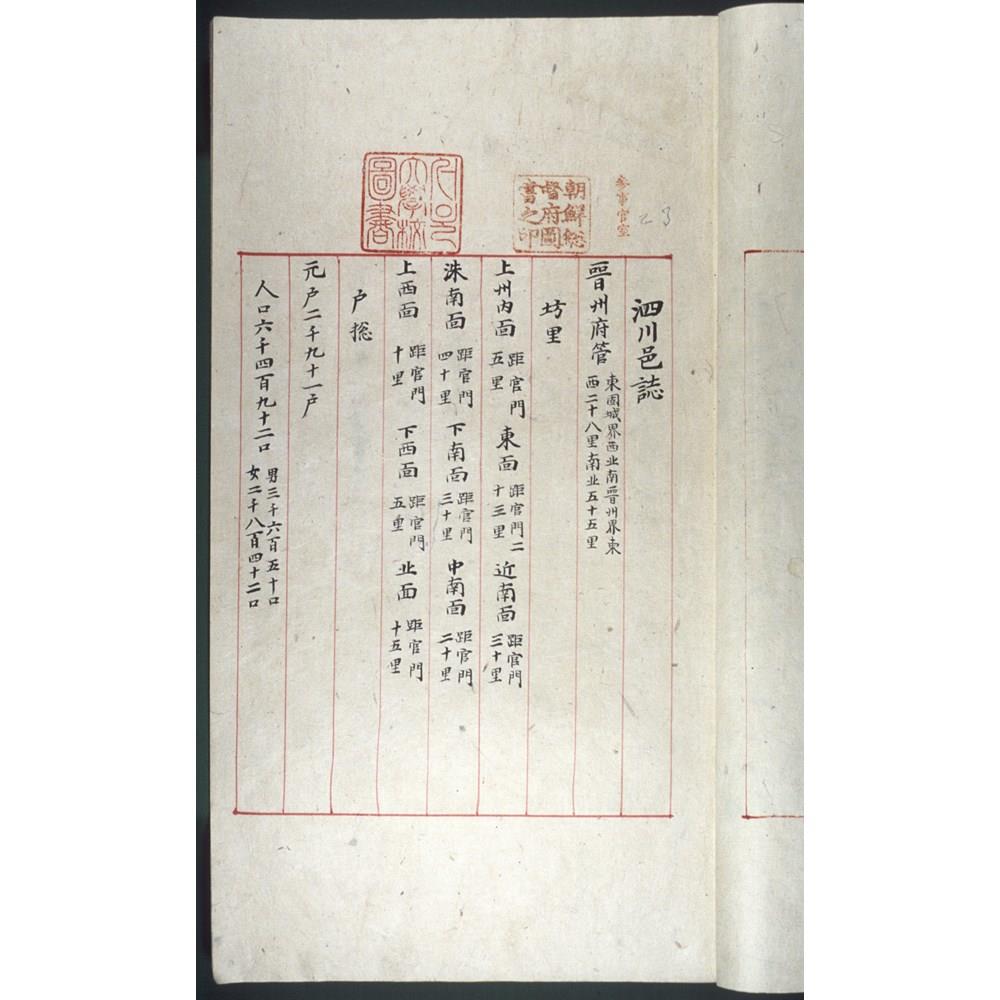 參事官室
23
朝鮮総
督府圖
書之印
大學校
圖書
泗川邑誌
晉州府管 東固城界西北南晉州界東西二十八里南北五十五里
坊里
上州內面 距官門五里 東面 距官門二十三里 近南面 距官門三十里
洙南面 距官門四十里 下南面 距官門三十里 中南面 距官門二十里
上西面 距官門十里 下西面 距官門五里 北面 距官門十五里
戶摠
元戶二千九十一戶
人口六千四百九十二口 男三千六百五十口 女二千八百四十二口